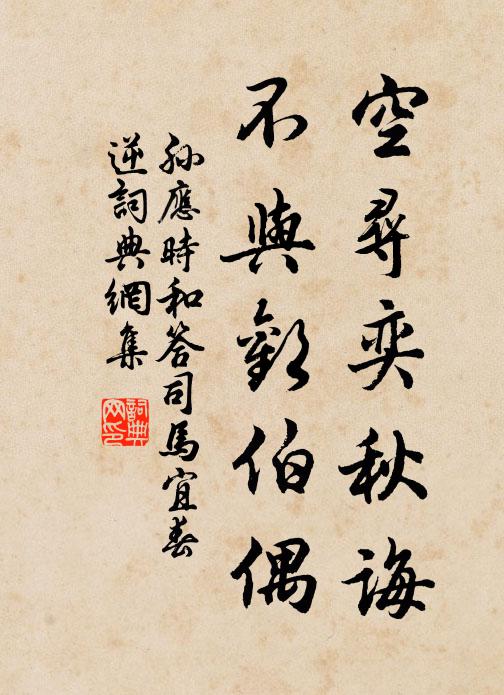 空尋奕秋誨
不與歡伯偶
孫應時和答司馬宜春
逆詞典網集
詞典
网印